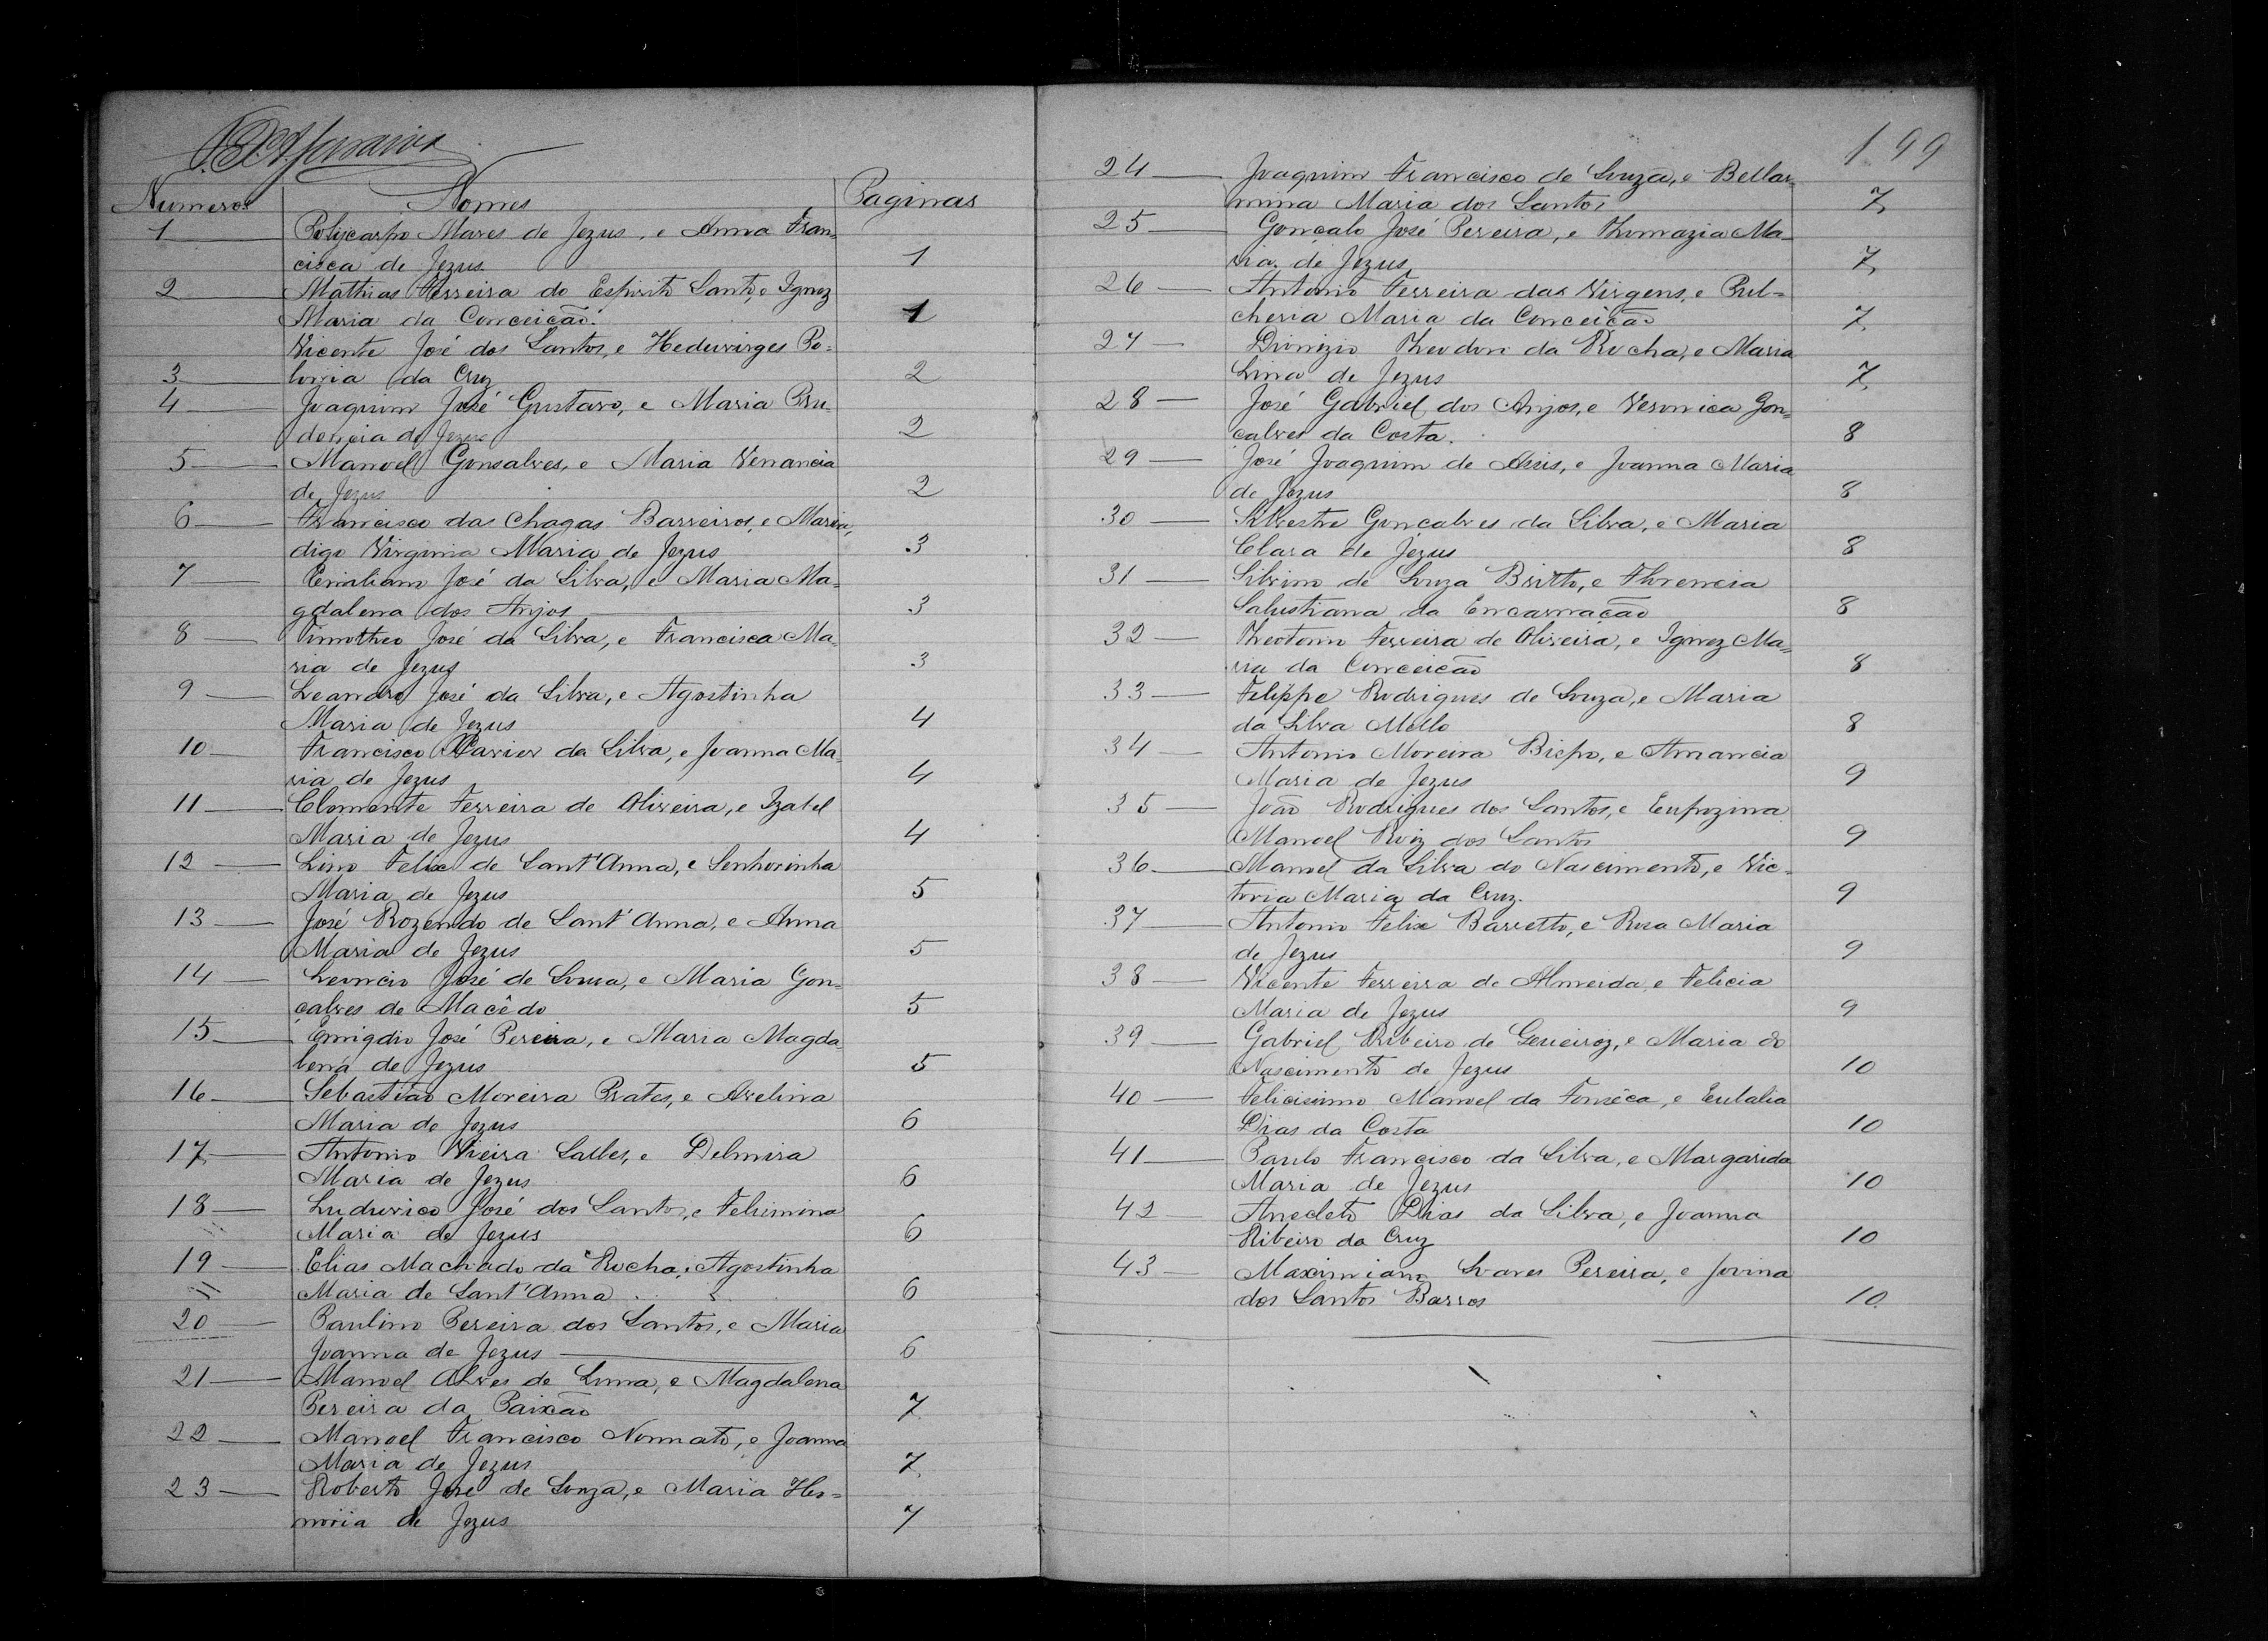 Numeros Nomes Paginas
1 Polycarpo Mares de Jezus, e Anna Fran=
cisca de Jezus 1
2 Mathias Ferreira do Espirito Santo, e Ignez
Maria da Conceicão. 1
Vicente José dos Santos, e Heduvirges Po=
3 lonia da Cruz 2
4 Joaquim José Gustavo, e Maria Pru=
dencia de Jezus 2
5 Manoel Gonsalves, e Maria Venancia
de Jezus 2
6 Francisco das Chagas Barreiros, e Maria,
digo Virginia Maria de Jezus 3
7 José da Silva, e Maria Ma=
gdalena dos Anjos 3
8 Timotheo José da Silva, e Francisca Ma=
ria de Jezus 3
9 Leandro José da Silva, e Agostinha
Maria de Jezus 4
10 Francisco Xavier da Silva, e Joanna Ma=
ria de Jezus 4
11 Clemente Ferreira de Oliveira, e Izabel
Maria de Jezus 4
12 Lino Felix de Sant'Anna, e Senhorinha
Maria de Jezus 5
13 José Rozendo de Sant'Anna, e Anna
Maria de Jezus 5
14 Leoncio José de Sousa, e Maria Gon=
çalves de Macêdo 5
15 Emigdio José Pereira, e Maria Magda=
lena de Jezus 5
16 Sebastião Moreira Prates, e Avelina
Maria de Jezus 6
17 Antonio Vieira Salles, e Delmira
Maria de Jezus 6
18 Ludovico José dos Santos, e Felismina
Maria de Jezus 6
19 Elias Machado da Rocha, e Agostinha
Maria de Sant'Anna 6
20 Paulino Pereira dos Santos, e Maria
Joanna de Jezus 6
21 Manoel Alves de Lima, e Magdalena
Pereira da Paixão 7
22 Manoel Francisco Nonnato, e Joanna
Maria de Jezus 7
23 Roberto José de Souza, e Maria Her=
moria de Jezus 7
199
24 Joaquim Francisco de Souza, e Bellar=
mina Maria dos Santos 7
25 Gonçalo José Pereira, e Thomazia Ma=
ria de Jezus 7
26 Antonio Ferreira das Virgens, e Pul=
cheria Maria da Conceicão 7
27 Dionizio Theodoro da Rocha, e Maria
Lina de Jezus 7
28 José Gabriel dos Anjos, e Veronica Gon=
çalves da Costa. 8
29 José Joaquim de Assis, e Joanna Maria
de Jezus 8
30 Silvestre Goncalves da Silva, e Maria
Clara de Jezus 8
31 Silvino de Souza Britto, e Florencia
Salustiana da Encarnacão 8
32 Theotonio Ferreira de Oliveira, e Ignez Ma=
ria da Conceicão 8
33 Filippe Rodrigues de Souza, e Maria
da Silva Mello 8
34 Antonio Moreira Bispo, e Amancia
Maria de Jezus 9
35 João Rodrigues dos Santos, e Eufrozina
Manoel Roiz dos Santos 9
36 Manoel da Silva do Nascimento, e Vic=
toria Maria da Cruz. 9
37 Antonio Felix Barretto, e Rosa Maria
de Jezus 9
38 Vicente Ferreira de Almeida, e Felicia
Maria de Jezus 9
39 Gabriel Ribeiro de Queiroz, e Maria do
Nascimento de Jezus 10
40 Felicissimo Manoel da Fonsêca, e Eulalia
Dias da Costa 10
41 Paulo Francisco da Silva, e Margarida
Maria de Jezus 10
42 Anecleto Dias da Silva, e Joanna
Ribeiro da Cruz 10
43 Maximiano Soares Pereira, e Jovina
dos Santos Barros 10